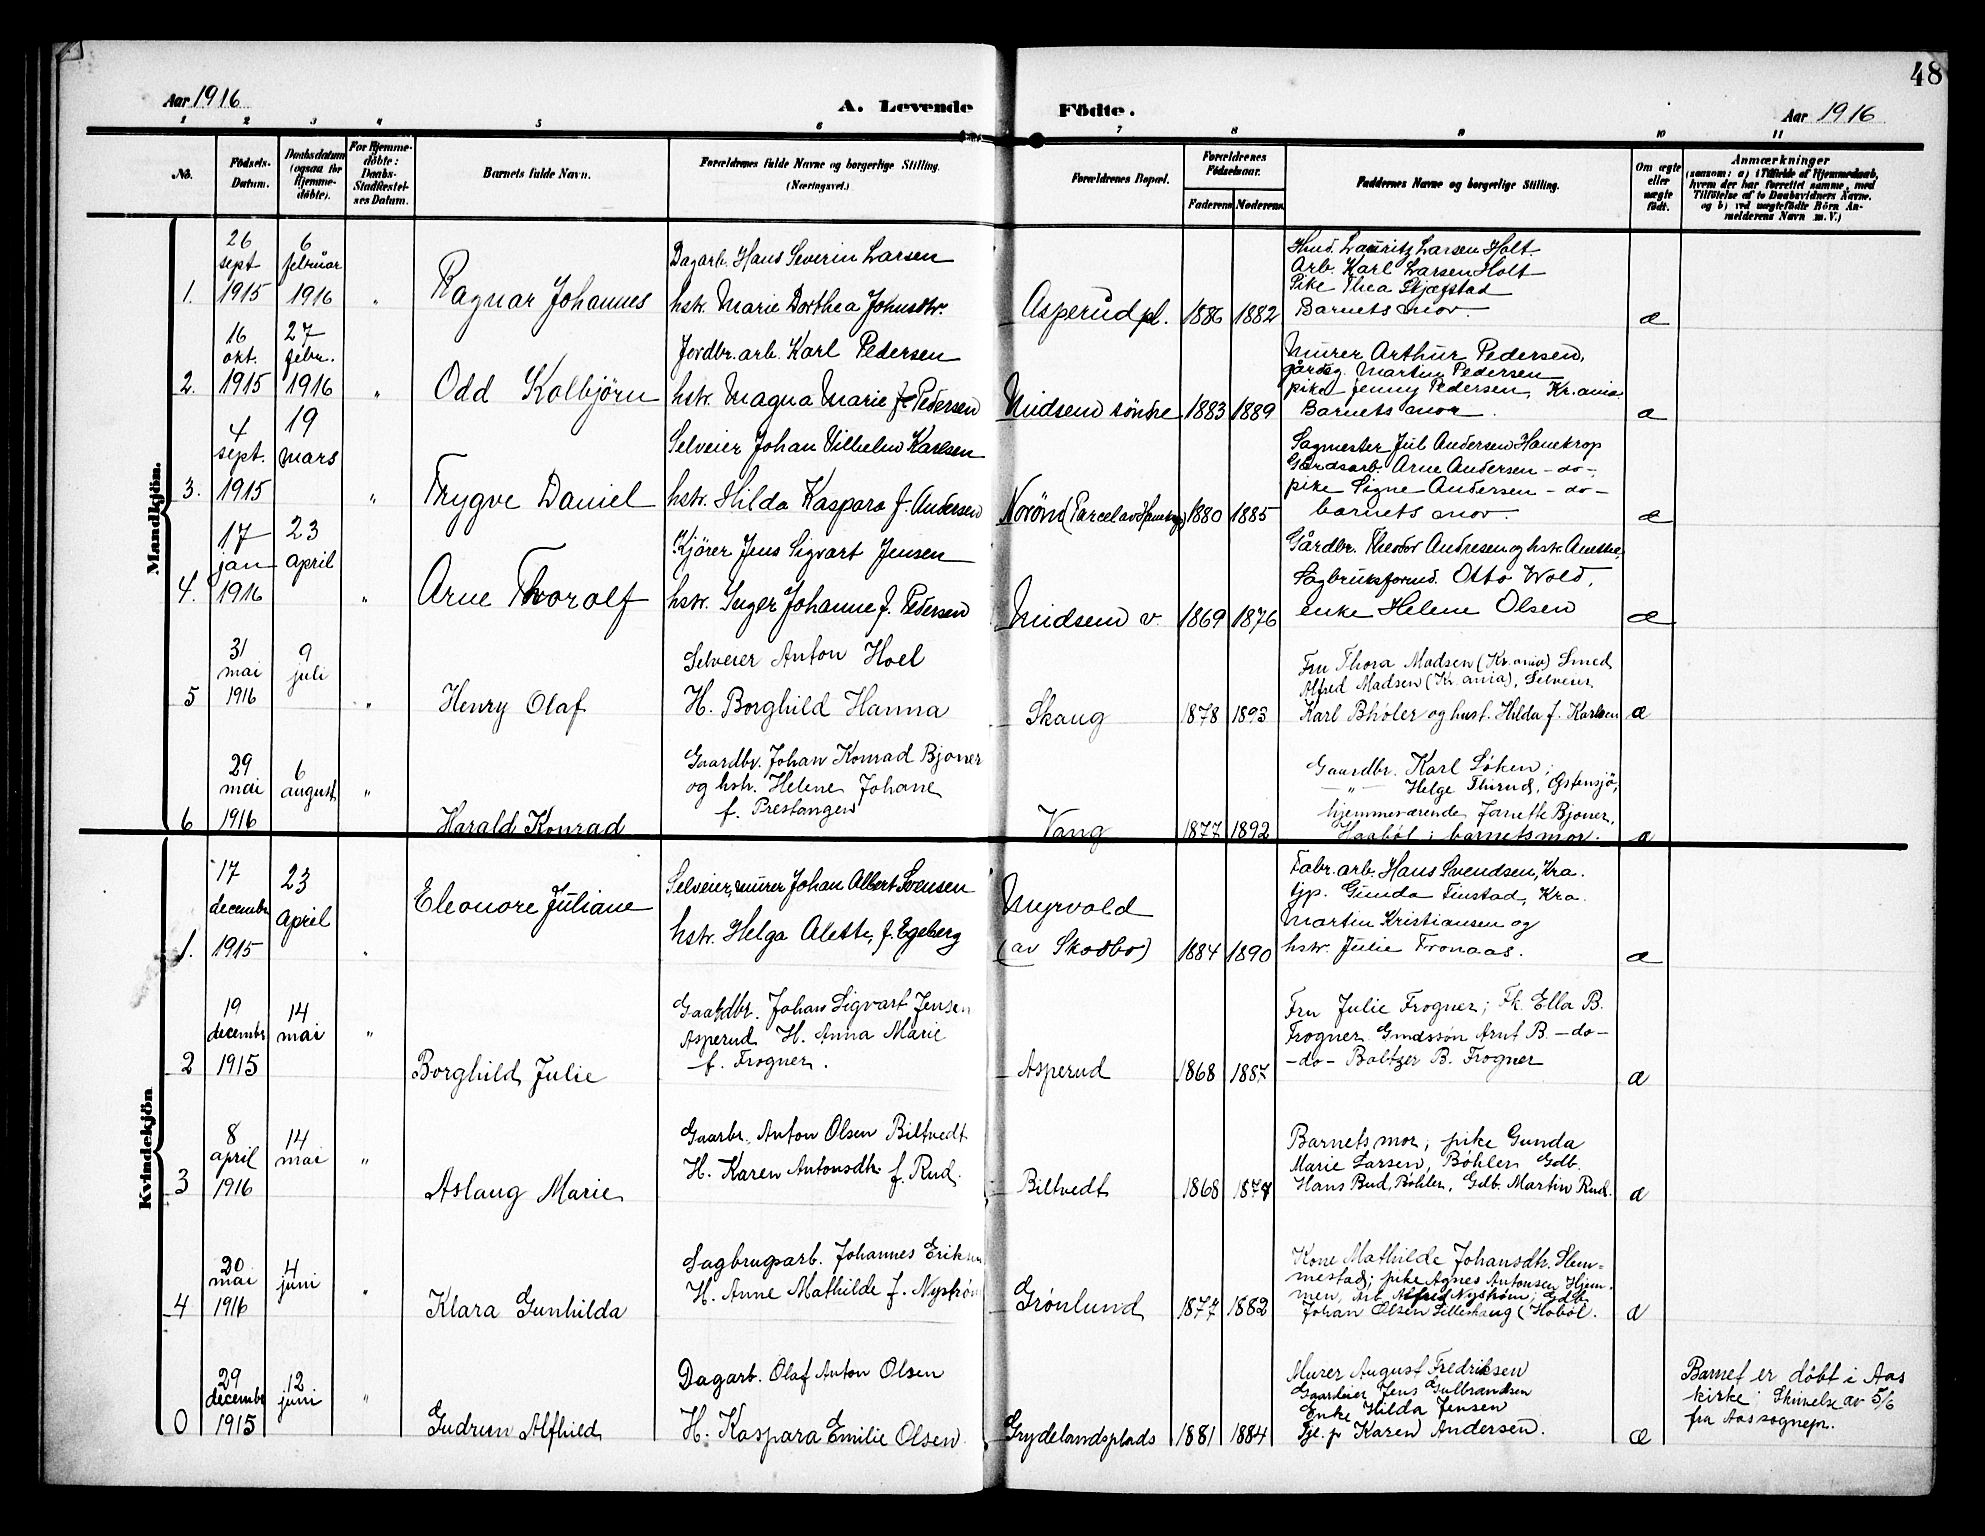 48
Aar 1916
A. Levende
Födte.
Aar 1916
1 2 3 4 5 6 7 8 9 10 11
No.
Födsels-
Datum.
Daabsdatum
(ogsaa for
Hjemme-
döbte).
For Hjemme-
döbte:
Daabs-
Stadfæstel-
ses Datum.
Barnets fulde Navn.
Forældrenes fulde Navne og borgerlige Stilling.
(Næringsvei.)
Forældrenes Bopæl.
Forældrenes
Födselsaar.
Faderens Moderens
Faddernes Navne og borgerlige Stilling.
Om ægte
eller
uægte
födt.
Anmærkninger
(saasom: a) i Tilfælde af Hjemmedaab,
hvem der har forrettet samme, med
Tilföielse af to Daabsvidners Navne,
og b) ved uægtefödte Börn An-
melderens Navn m. V.)
Mandkjön.
1. 26 sept 1915
6 februar 1916
"
Ragnar Johannes
Dagarb. Hans Severin Larsen
hstr. Marie Dorthea Johnsdtr.
Asperud pl. 1886 1882
Lauritz Larsen Holt
Arb. Karl Larsen Holt
Pike Thea Skjægstad
Barnets mor.
æ
2. 16 okt. 1915
27 febr. 1916
"
Odd Kolbjörn
Jordbr. arb. Karl Pedersen
hstr. Magna Marie f. Pedersen
Midsem söndre 1883 1889
Murer Arthur Pedersen,
gårdbg. Martin Pedersen
pike Jenny Pedersen, Kr.ania.
Barnets mor.
æ
3. 4 sept. 1915
19 mars
"
Trygve Daniel
Selveier Johan Vilhelm Karlsen
hstr. Hilda Kaspara f. Andersen
(Parcel av 1880 1885
Sagmester Jul. Andersen Hanekrop
Gårdsarb. Arne Andersen - do -
pike Signe Andersen - do -
barnets mor.
æ
4. 17 jan 1916
23 april
"
Arne Thorolf
Kjörer Jens Sigvart Jensen
hstr. Inger Johanne f. Pedersen
Midsem v. 1869 1876
Gårdbr. Theodor Andresen og hstr. Anethe,
Sagbruksformd. Otto Wold,
enke Helene Olsen
æ
5 31 mai 1916
9 juli
"
Henry Olaf
Selveier Anton Hoel
H. Borghild Hanna
Skaug 1878 1893
Fru Thora Madsen (Kr.ania) Smed
Alfred Madsen (Kr ania), Selveier
Karl Bhöler og hust. Hilda f. Karlsen
æ
6 29 mai 1916
6 august
"
Harald Konrad
Gaardbr. Johan Konrad Bjoner
og hstr. Helene Johane
f. Prestangen
Vang 1877 1892
Gaardbr. Karl Söhen;
- " - Helge Thirud, Østensjö,
hjemmeværende Janette Bjoner,
Haaböl; barnets mor.
æ
Kvindekjön
1. 17 decembr 1915
23 april
"
Eleonore Juliane
Selveier, murer Johan Albert Svensen
hstr. Helga Alette, f. Egeberg
Myrvold
(av Skodbo) 1884 1890
Fabr. arb. Hans Svendsen, Kra.
tjp. Gunda Finstad, Kra.
Martin Kristiansen og
hstr. Julie Tronaas.
æ
2 19 decembr 1915
14 mai
"
Borghild Julie
Gaardbr. Johan Sigvart Jensen
Asperud H. Anna Marie
f. Frogner.
Asperud 1868 1887
Fru Julie Frogner; Fk. Ella B.
Frogner. Gmdssön Arnt B. - do -
- do - Baltzer B. Frogner
æ
3 8 april 1916
14 mai
"
Aslaug Marie
Gaarbr. Anton Olsen Biltvedt
H. Karen Antonsdtr. f. Rud.
Biltvedt 1868 1874
Barnets mor; pike Gunda
Marie Larsen, Bøhler Gdb.
Hans Rud, Bøhler, Gdb. Martin Rud.
æ
4 20 mai 1916
4 juni
"
Klara Gunhilda
Sagbrugsarb. Johannes Eriksen
H. Anne Mathilde f. Nystrøm
Grönlund 1877 1882
Kone Mathilde Johansdtr. Slem-
mestad; pike Agnes Antonsen Hjem-
men, Arb. Alfred Nystrøm; Gdb.
Johan Olsen Lillehaug (Haböl.
æ
0 29 decembr 1915
12 juni
"
Gudrun Alfhild
Dagarb. Olaf Anton Olsen
H. Kaspara Emilie Olsen.
Grydelandsplads 1881 1884
Murer August Fredriksen
Gaardeier Jens Gulbrandsen
Enke Hilda Jensen
Tje. p. Karen Andersen.
æ
Barnet er döbt i Aas
kirke; Skrivelse av 5/6
fra Aas sognepr.